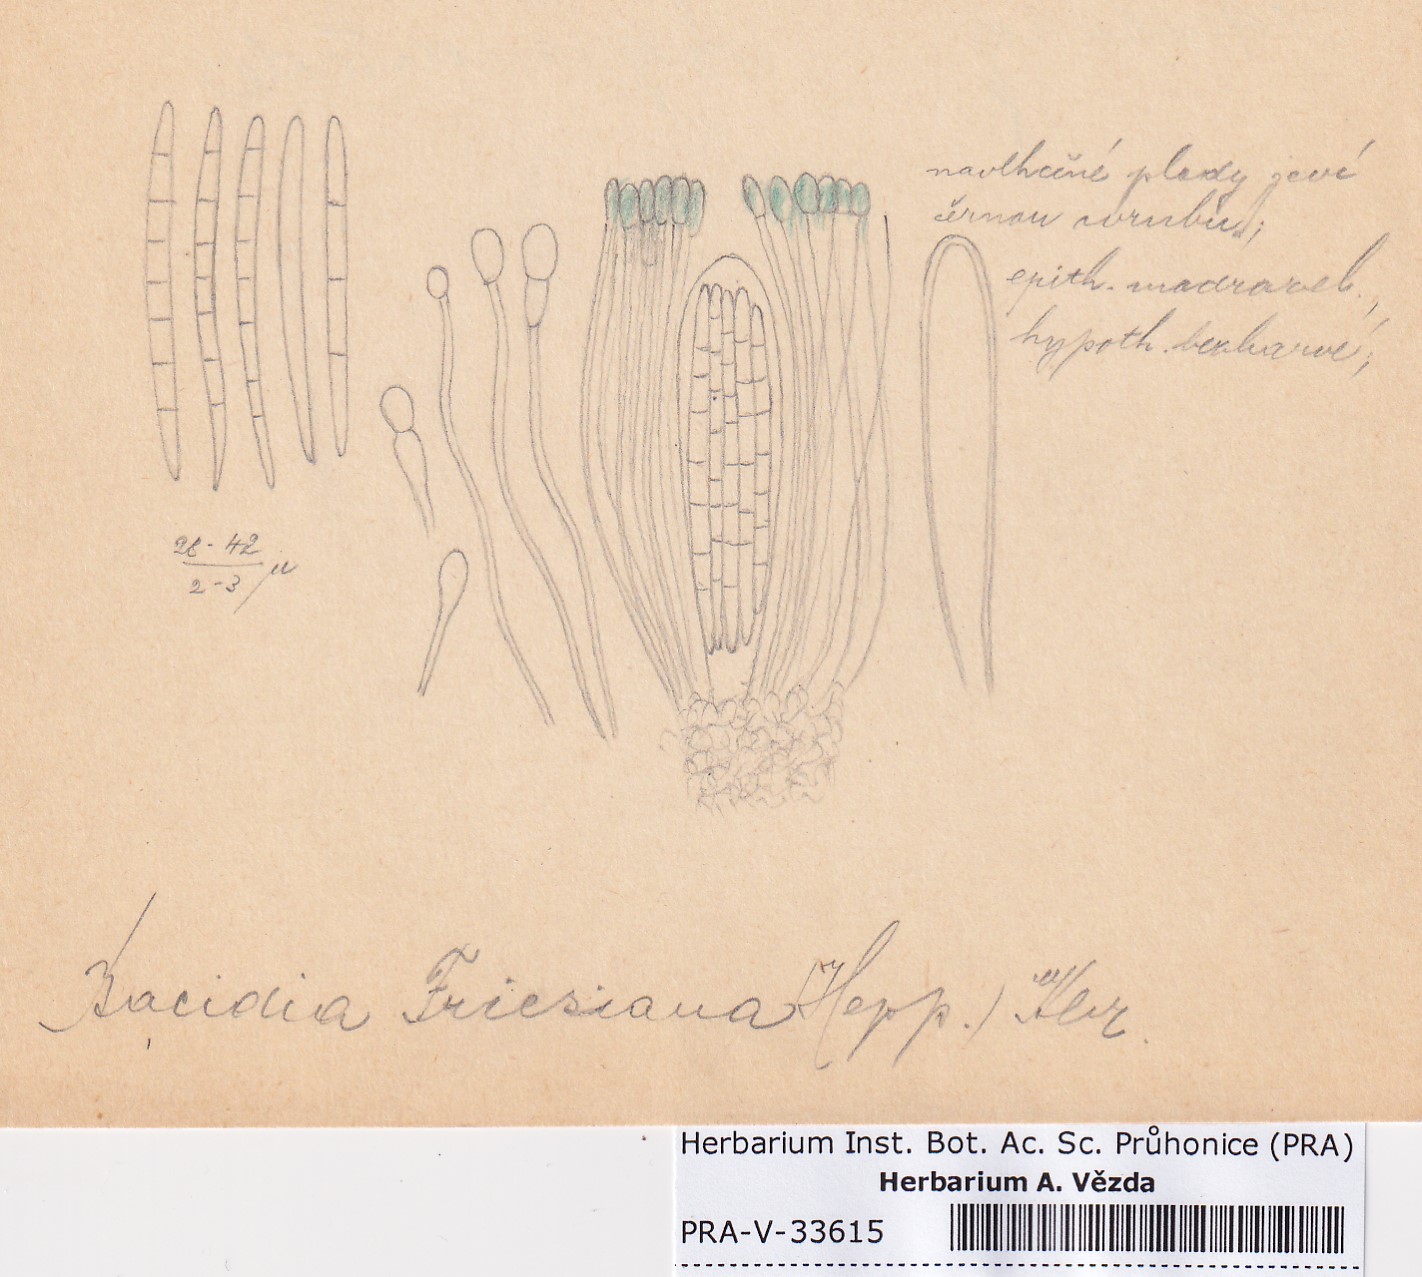 navlhčené plody jeví
černou obrubu;
epith. modrozel.,
hypoth. bezbarvé;
28-42
2-3 µ
Bacidia Friesiana (Hepp.) Kbr.
Herbarium Inst. Bot. Ac. Sc. Průhonice (PRA)
Herbarium A. Vězda
PRA-V-33615